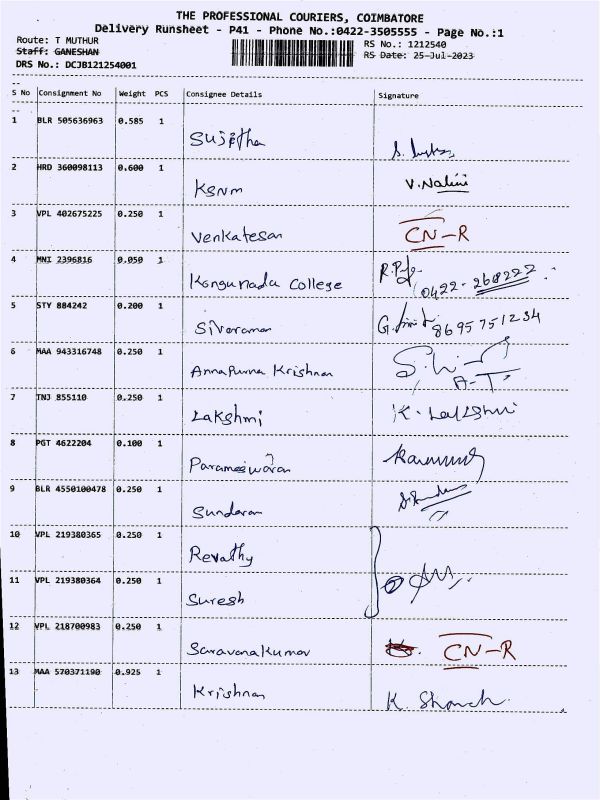 THE PROFESSIONAL COURIERS, COIMBATORE
Delivery Runsheet - P41 - Phone No.:0422-3505555 - Page No.:1
Route: T MUTHUR RS No.: 1212540
Staff: GANESHAN RS Date: 25-Jul-2023
DRS No.: DCJB121254001
S No Consignment No Weight PCS Consignee Details Signature
1 BLR 505636963 0.585 1 Sujitha
2 HRD 360098113 0.600 1 KSNM V. Nalini
3 VPL 402675225 0.250 1 Venkatesan CN-R
4 MNI 2396816 0.050 1 Kongunadu College 0422-268222
5 STY 884242 0.200 1 Sivaraman 8695751234
6 MAA 943316748 0.250 1 Annapurna Krishnan
7 TNJ 855110 0.250 1 Lakshmi K. Lakshmi
8 PGT 4622204 0.100 1 Parameswaran
9 BLR 4550100478 0.250 1 Sundaran
10 VPL 219380365 0.250 1 Revathy
11 VPL 219380364 0.250 1 Suresh
12 VPL 218700983 0.250 1 Saravanakumar CN-R
13 MAA 570371190 0.925 1 Krishnan